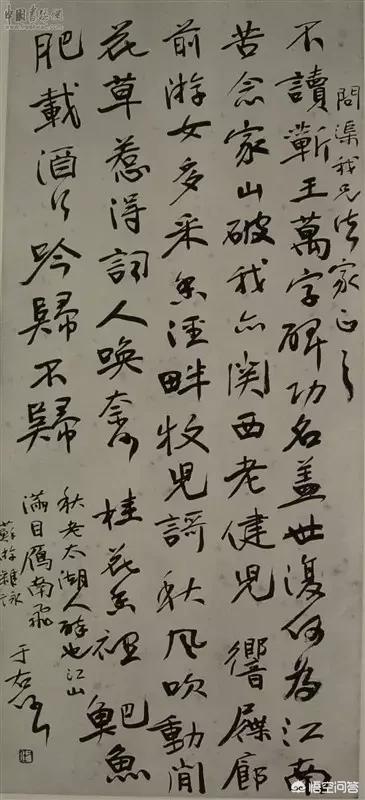 問渠我兄法家正之
不讀蘄王萬字碑功名蓋世復何為江南
苦念家山破我亦関西老健兒 響屧廊
前游女多采香涇畔牧兒謌秋風吹動閒
花草惹得詞人喚奈何 桂花香裡鲃魚
肥載酒行吟歸不歸
秋老太湖人醉也江山
滿目雁南飛
蘇游雜詠
于右任
悟空问答